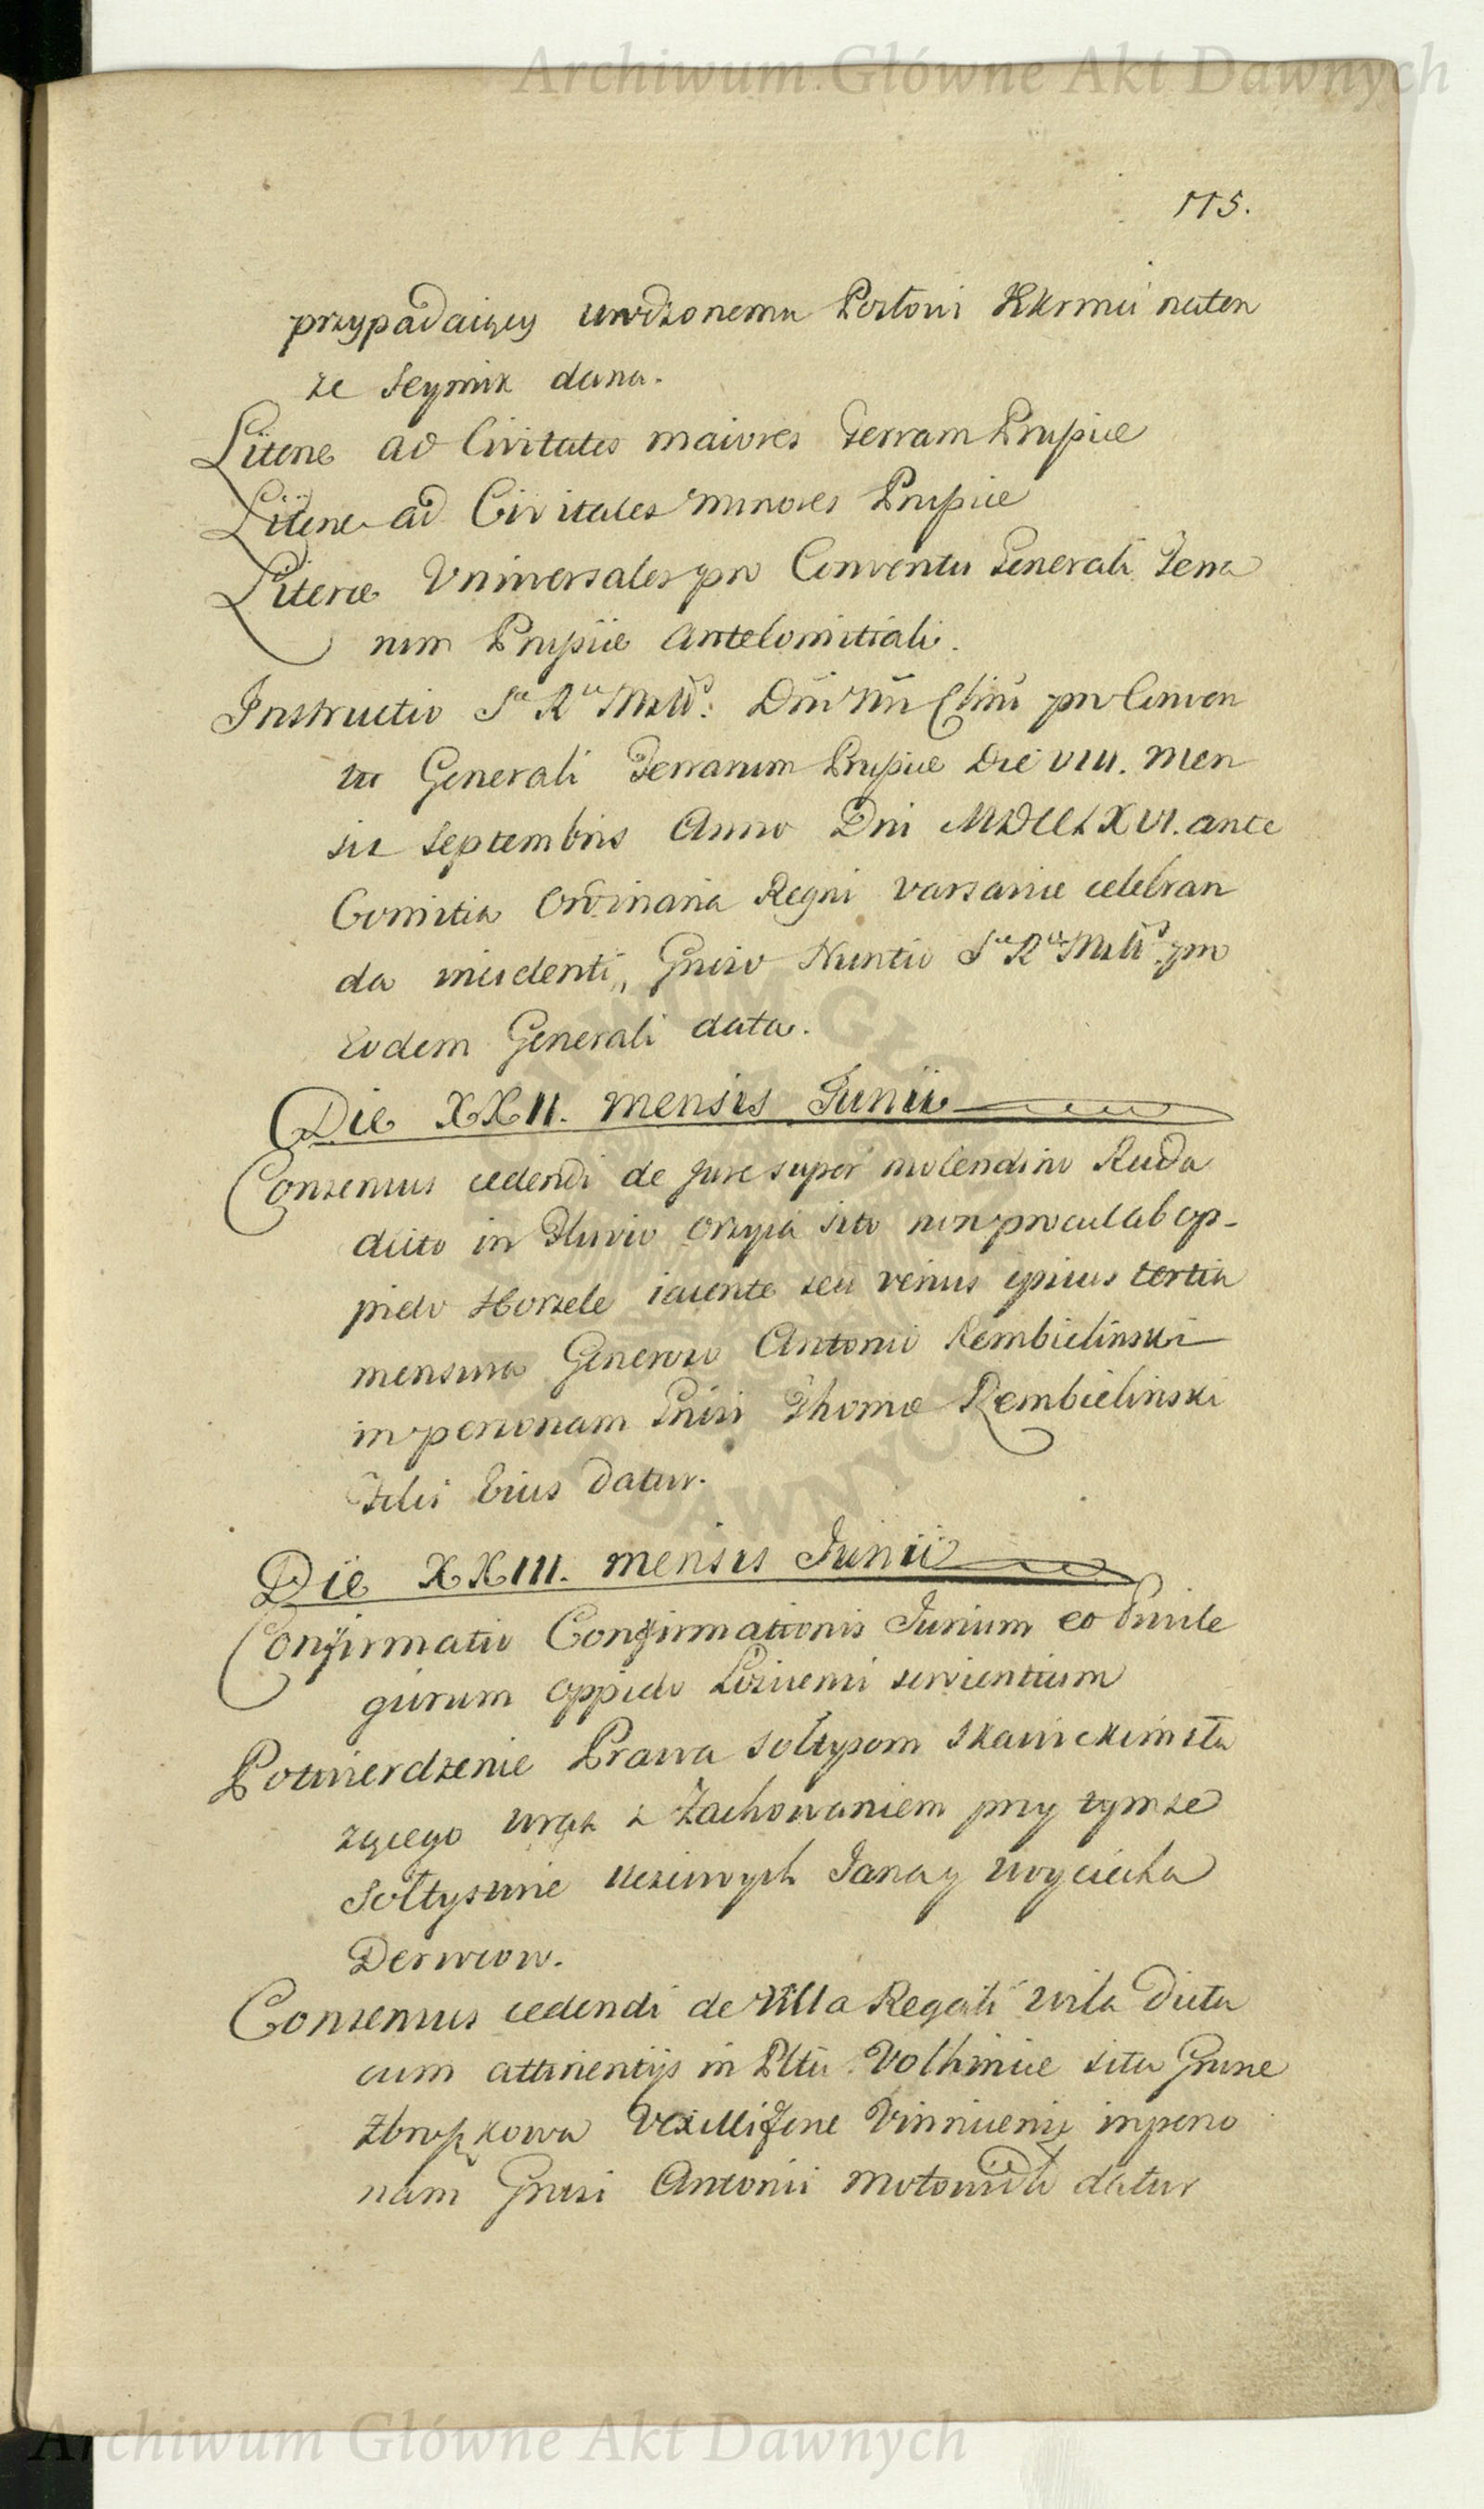 Archiwum Główne Akt Dawnych
115.
przypadaiący urodzonemu Posłowi JKrmci naten
że Seymik dana.
Literæ ad Civitates maiores Terrarum Prussiæ
Literæ ad Civitates minores Prussiæ
Literæ Universales pro Conventu Generali Terra
rum Prussiæ Antecomitiali.
Instructio Sæ Ræ Mttis. Dni Nri Clmi pro Conven
tu Generali Terrarum Prussiæ Die VIII. Men
sis Septembris Anno Dni MDCCLXVI. ante
Comitia Ordinaria Regni Varsaviæ celebran
da incidenti, Gniso Nuntio Sæ Ræ Mttis pro
eodem Generali data.
Die XXII. mensis Junii
Consensus cedendi de Jure super molendino Ruda
dicto in Fluvio Orzyca sito non procul ab op-
pido Horzele iacente seu verius ipsius tertia
mensura Generoso Antonio Rembielinski
in personam Gnisi Thomæ Rembielinski
Filii Eius datur.
Die XXIII. mensis Junii
Confirmatio Confirmationis Jurium et Privile
giorum oppido servientium
Potwierdzenie Prawa Sołtysom Skawickim słu
żącego wraz z Zachowaniem przy tymże
Sołtystwie Uczciwych Jana y Woyciecha
Derwiow.
Consensus cedendi de Villa Regali Wila dicta
cum attinentijs in Pltu Volhiniæ sita Gnisæ
Vexilliferæ Vinnicensi in perso
nam Gnisi Antonii datur
ARCHIWUM GŁÓWNE AKT DAWNYCH
Archiwum Główne Akt Dawnych